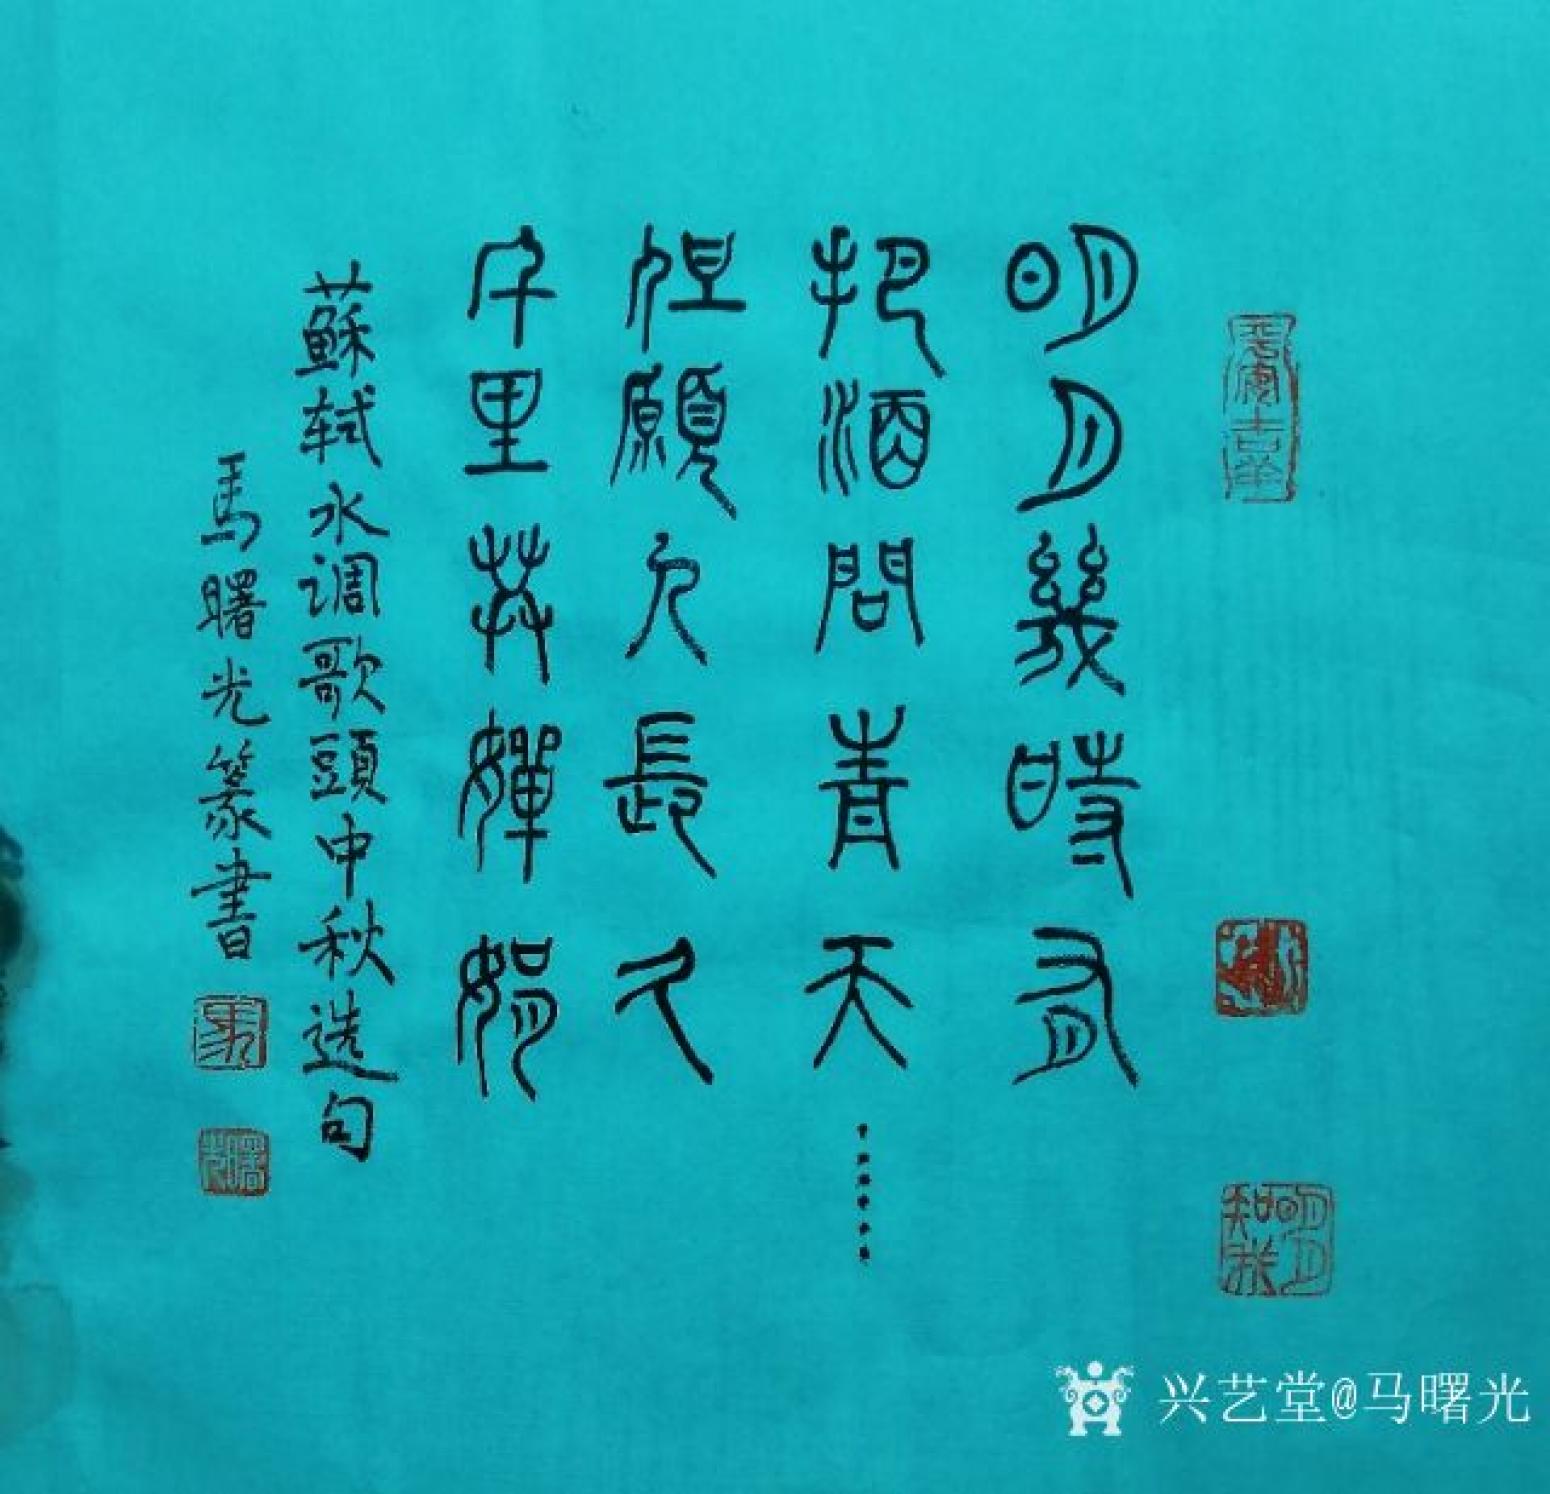 明月幾時有
把酒問青天
……
但願人長久
千里共嬋娟
蘇轼水调歌頭中秋选句
馬曙光篆書
明月知我
兴艺堂@马曙光